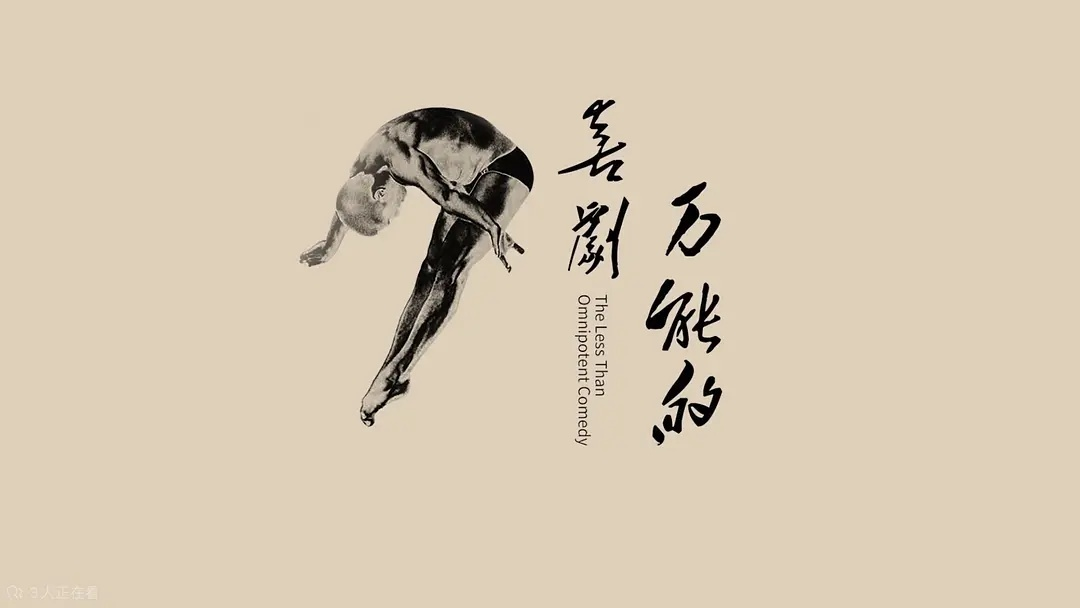 万能的
喜劇
The Less Than
Omnipotent Comedy
3人正在看